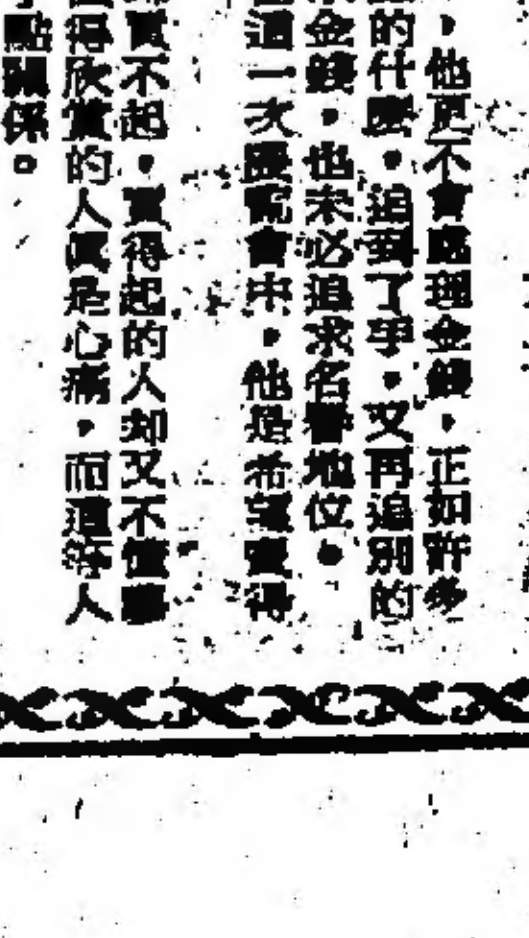 ，他更不會處理金錢，正如許多
的什麼，追到了手，又再追別的
金錢，也未必追求名譽地位。
這一次展覽會中，他是希望賣得
買不起，買得起的人却又不懂
得欣賞的人眞是心痛，而這等人
點關係。